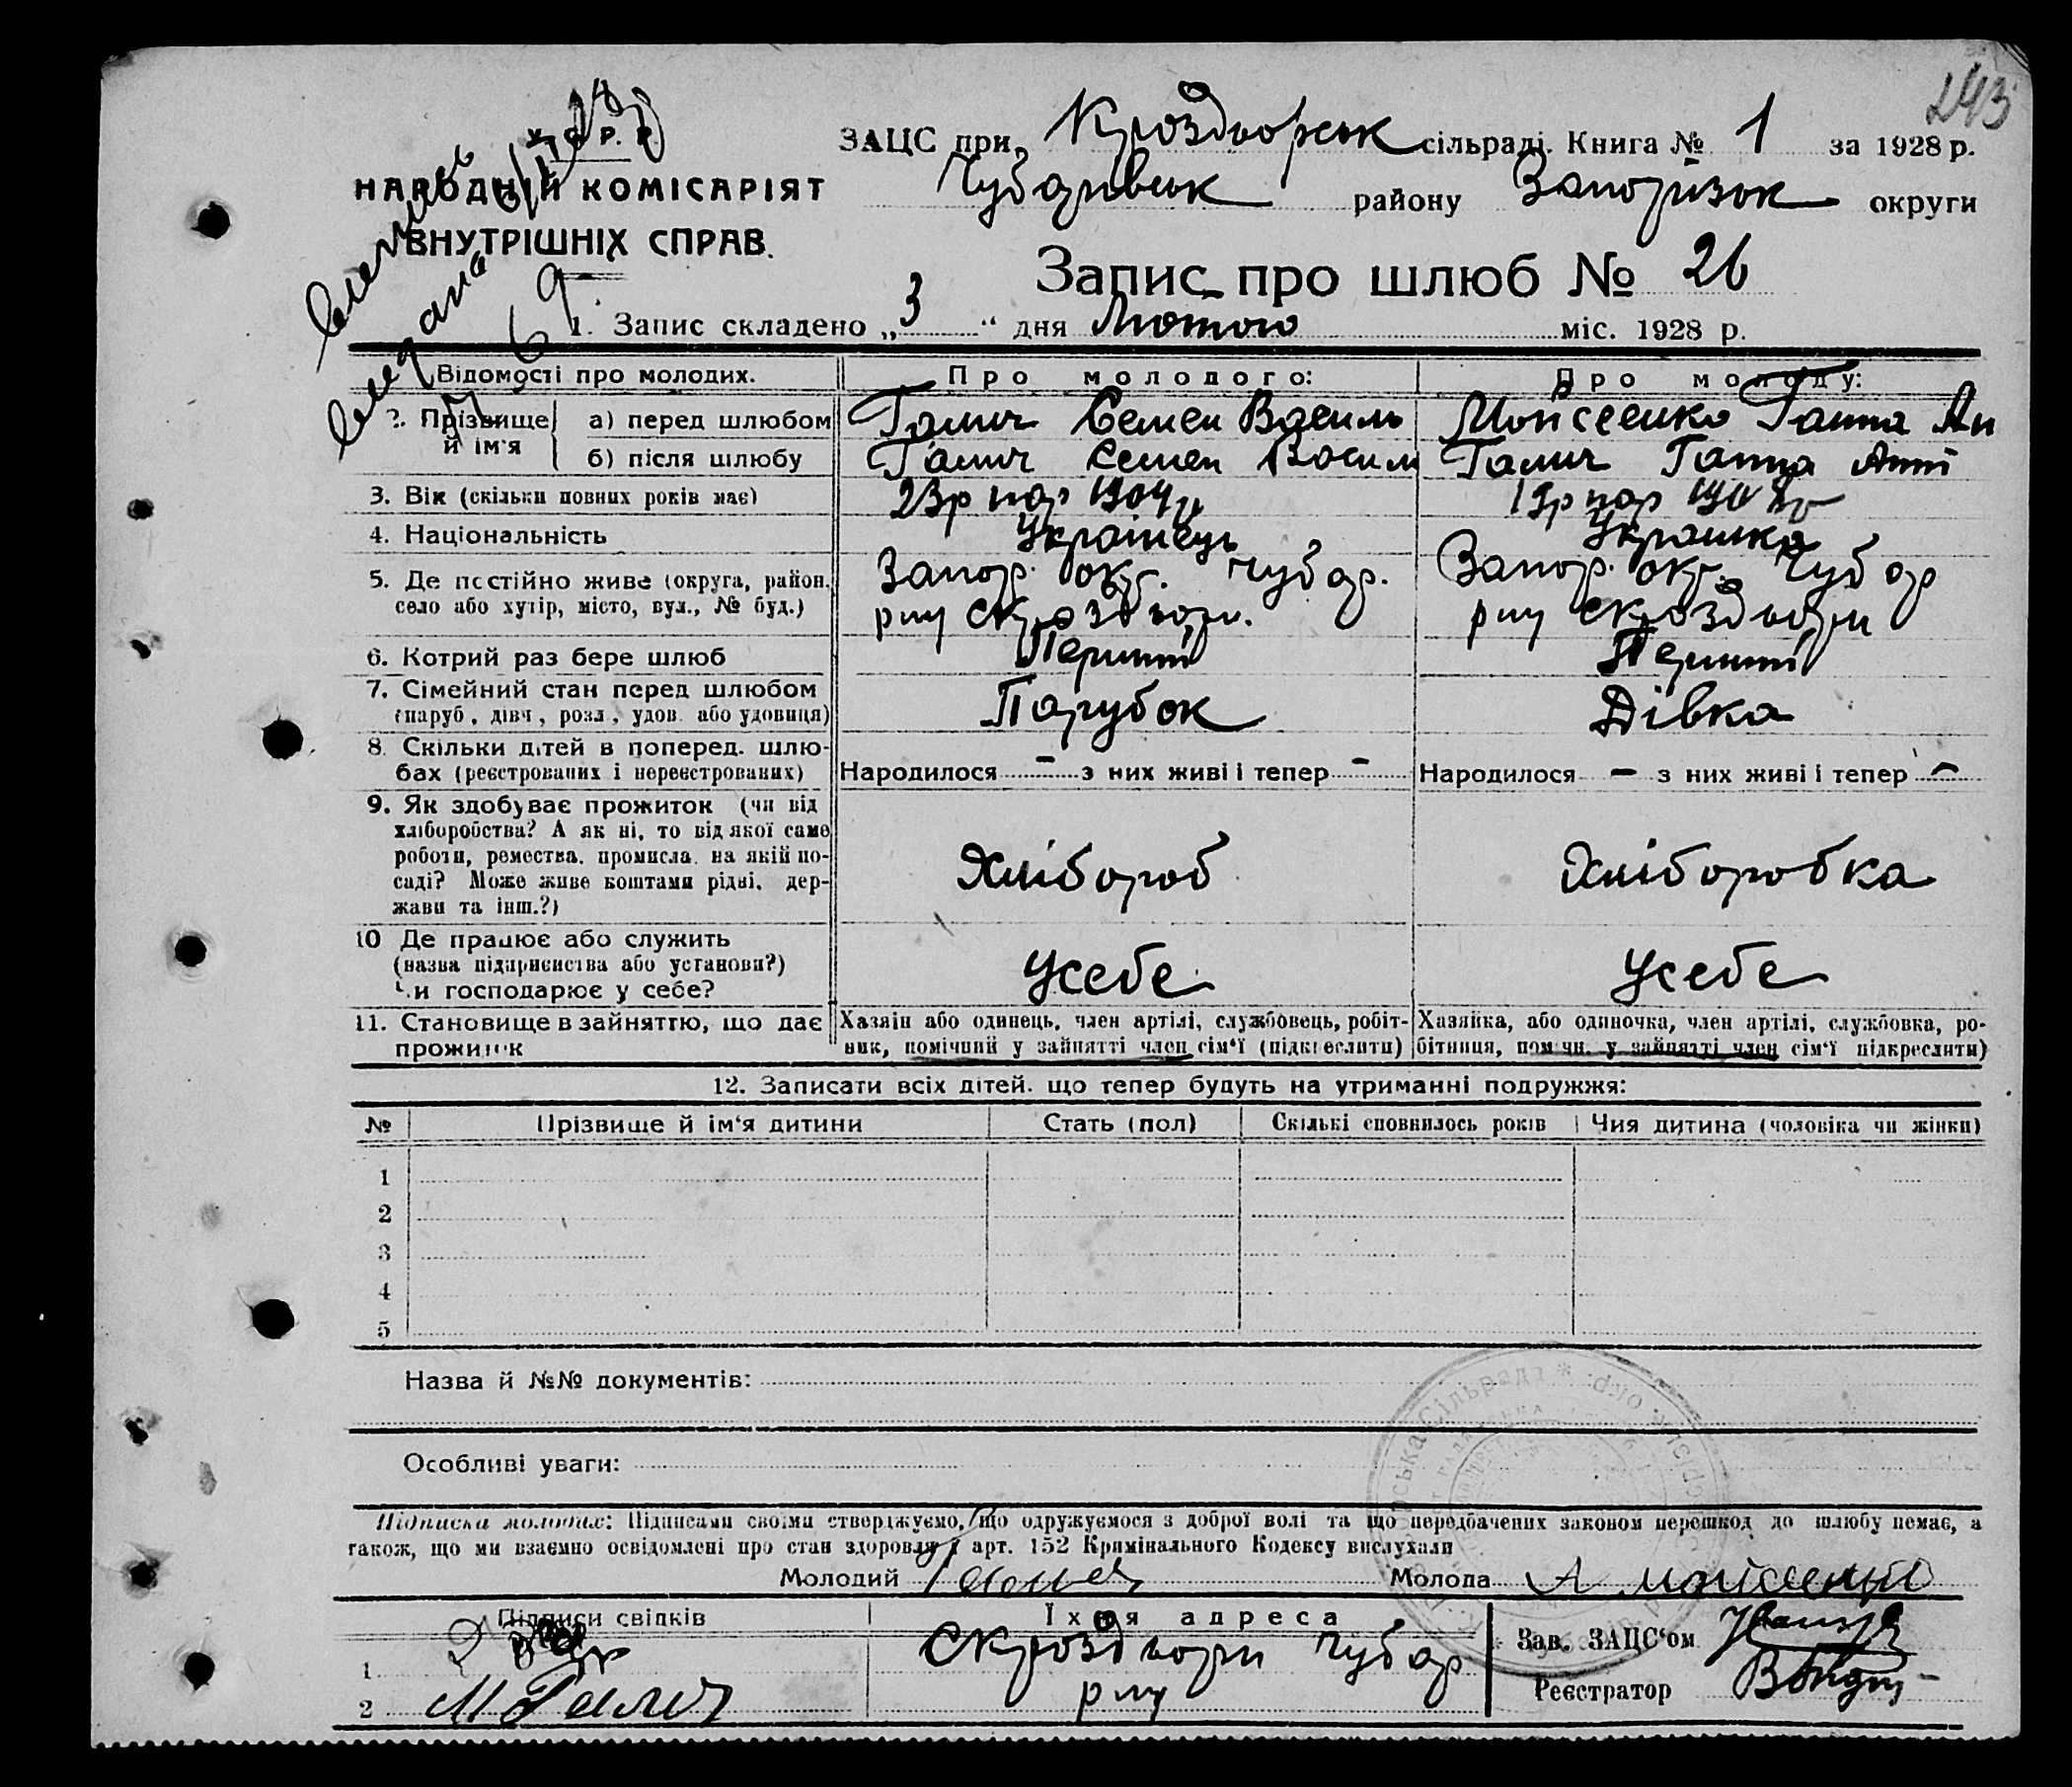 243
У. С. Р. Р.
НАРОДНІЙ КОМІСАРІЯТ
ВНУТРІШНІХ СПРАВ.
ЗАЦС при Кроздворськ сільраді. Книга № 1 за 1928 р.
Чубарівськ району Запорізьк округи
Запис про шлюб № 26
1. Запис складено „3“ дня Лютого міс. 1928 р.
Відомості про молодих. Про молодого: Про молоду:
2. Прізвище й ім'я
а) перед шлюбом Галич Семен Василь Мойсеенко Ганна Ан
б) після шлюбу Галич Семен Васил Галич Ганна Ант
3. Вік (скільки повних років має) 23р нар 1904р 19р нар 1908р
4. Національність Українець Украинка
5. Де постійно живе (округа, район, Запор. окр. Чубар. Запор. окр. Чубар
село або хутір, місто, вул., № буд.) рну с Кроздвори. рну с Кроздвори
6. Котрий раз бере шлюб Перший Перший
7. Сімейний стан перед шлюбом Парубок Дівка
(паруб., дівч., розл., удов. або удовиця)
8. Скільки дітей в поперед. шлю-
бах (реєстрованих і нереєстрованих) Народилося - з них живі і тепер - Народилося - з них живі і тепер -
9. Як здобуває прожиток (чи від
хліборобства? А як ні, то від якої саме
роботи, ремества, промисла, на якій по- Хлібороб Хліборобка
саді? Може живе коштами рідні, дер-
жави та інш.?)
10 Де працює або служить
(назва підприємства або установи?) Усебе Усебе
Чи господарює у себе?
11. Становище в зайняттю, що дає Хазяїн або одинець, член артілі, службовець, робіт- Хазяйка, або одиночка, член артілі, службовка, ро-
прожиток ник, помічний у зайнятті член сім'ї (підкреслити) бітниця, помічн. у зайнятті член сім'ї підкреслити)
12. Записати всіх дітей, що тепер будуть на утриманні подружжя:
№ Прізвище й ім'я дитини Стать (пол) Скількі сповнилось років Чия дитина (чоловіка чи жінки)
1
2
3
4
5
Назва й №№ документів:
Особливі уваги:
Підписка молодих: Підписами своїми стверджуємо, що одружуємося з доброї волі та що передбачених законом перешкод до шлюбу немає, а
також, що ми взаємно освідомлені про стан здоровля і арт. 152 Кримінального Кодексу вислухали
Молодий Галич Молода А Мойсеенко
Підписи свідків Їхня адреса
1 с Кроздвори Чубар Зав. ЗАЦС'ом
2 М Галич рну Реєстратор